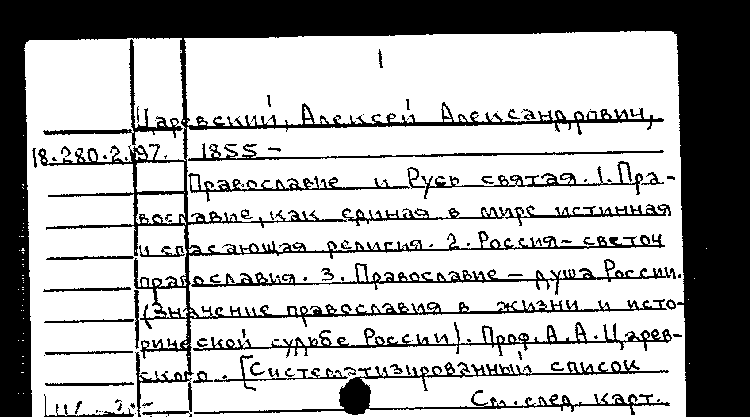 1
Царевский, Алексей Александрович,
18.280.2.197. 1855 –
Православие и Русь святая. 1. Пра-
вославие, как единая в мире истинная
и спасающая религия. 2. Россия – светоч
православия. 3. Православие – душа России.
(Значение православия в жизни и исто-
рической судьбе России). Проф. А. А. Царев-
ского. [Систематизированный список
См. след. карт.